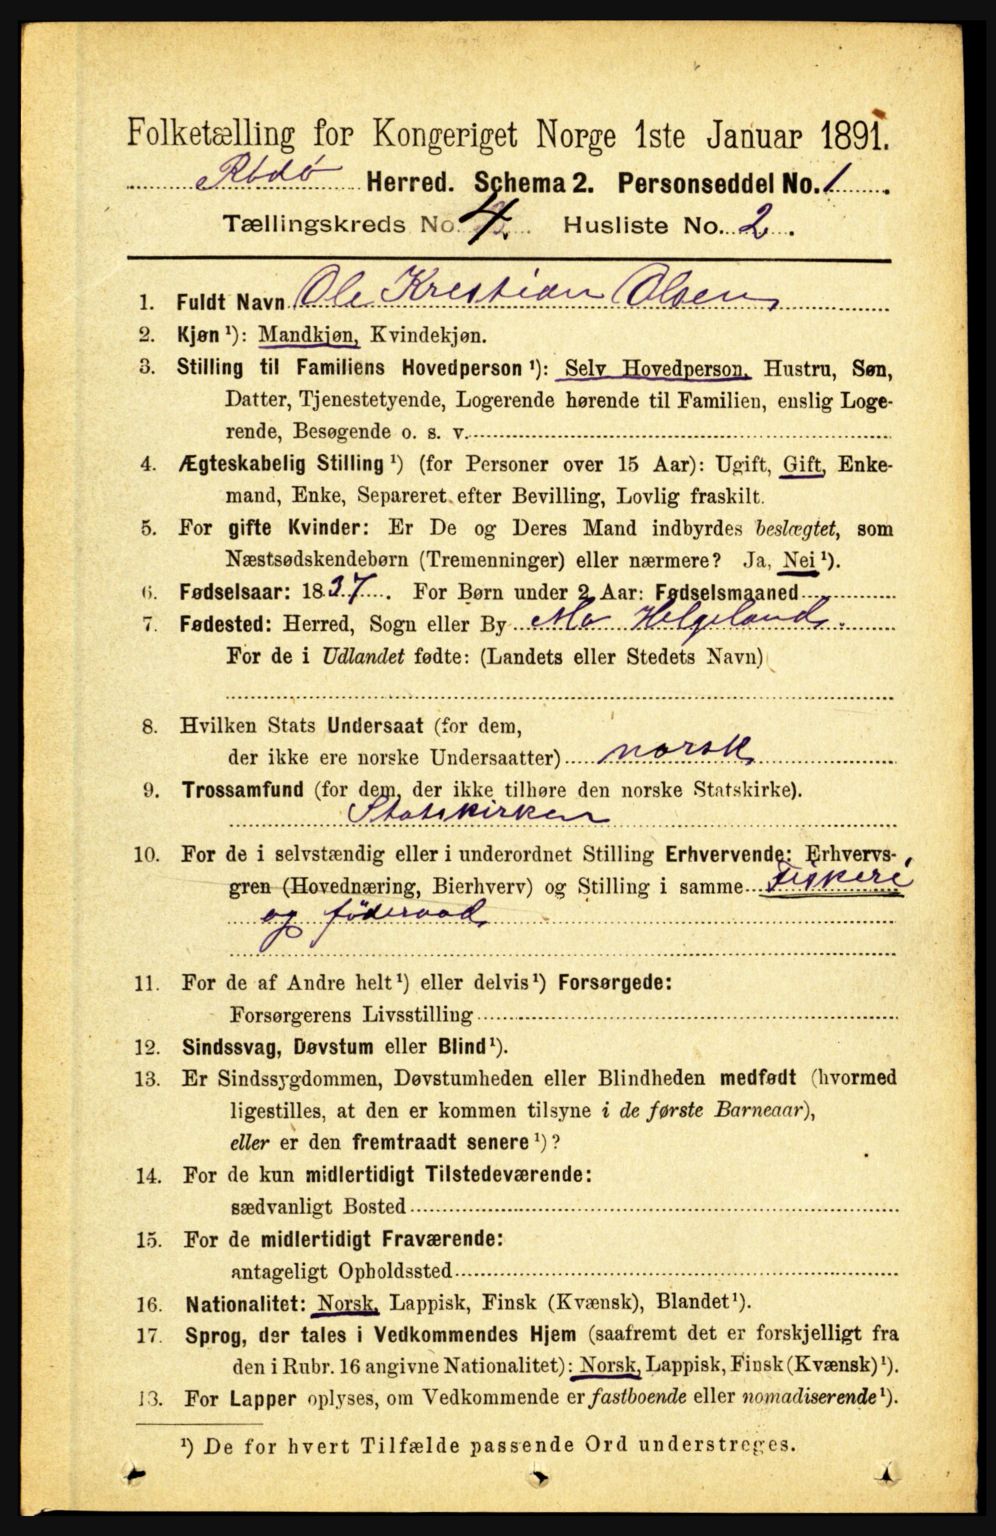 Folketælling for Kongeriget Norge 1ste Januar 1891.
Rödö Herred. Schema 2. Personseddel No. 1.
Tællingskreds No. 4. Husliste No. 2.
1. Fuldt Navn Ole Kristian Olsen
2. Kjøn ¹): Mandkjøn, Kvindekjøn.
3. Stilling til Familiens Hovedperson ¹): Selv Hovedperson, Hustru, Søn,
Datter, Tjenestetyende, Logerende hørende til Familien, enslig Loge-
rende, Besøgende o. s. v.
4. Ægteskabelig Stilling ¹) (for Personer over 15 Aar): Ugift, Gift, Enke-
mand, Enke, Separeret efter Bevilling, Lovlig fraskilt.
5. For gifte Kvinder: Er De og Deres Mand indbyrdes beslægtet, som
Næstsødskendebørn (Tremenninger) eller nærmere? Ja, Nei ¹).
6. Fødselsaar: 1837. For Børn under 2 Aar: Fødselsmaaned
7. Fødested: Herred, Sogn eller By Mo Helgeland.
For de i Udlandet fødte: (Landets eller Stedets Navn)
8. Hvilken Stats Undersaat (for dem,
der ikke ere norske Undersaatter) norsk
9. Trossamfund (for dem, der ikke tilhøre den norske Statskirke).
Statskirken
10. For de i selvstændig eller i underordnet Stilling Erhvervende: Erhvervs-
gren (Hovednæring, Bierhverv) og Stilling i samme Fiskeri
og föderaad
11. For de af Andre helt ¹) eller delvis ¹) Forsørgede:
Forsørgerens Livsstilling
12. Sindssvag, Døvstum eller Blind ¹).
13. Er Sindssygdommen, Døvstumheden eller Blindheden medfødt (hvormed
ligestilles, at den er kommen tilsyne i de første Barneaar),
eller er den fremtraadt senere ¹)?
14. For de kun midlertidigt Tilstedeværende:
sædvanligt Bosted
15. For de midlertidigt Fraværende:
antageligt Opholdssted
16. Nationalitet: Norsk, Lappisk, Finsk (Kvænsk), Blandet ¹).
17. Sprog, der tales i Vedkommendes Hjem (saafremt det er forskjelligt fra
den i Rubr. 16 angivne Nationalitet): Norsk, Lappisk, Finsk (Kvænsk) ¹).
13. For Lapper oplyses, om Vedkommende er fastboende eller nomadiserende ¹).
¹) De for hvert Tilfælde passende Ord understreges.